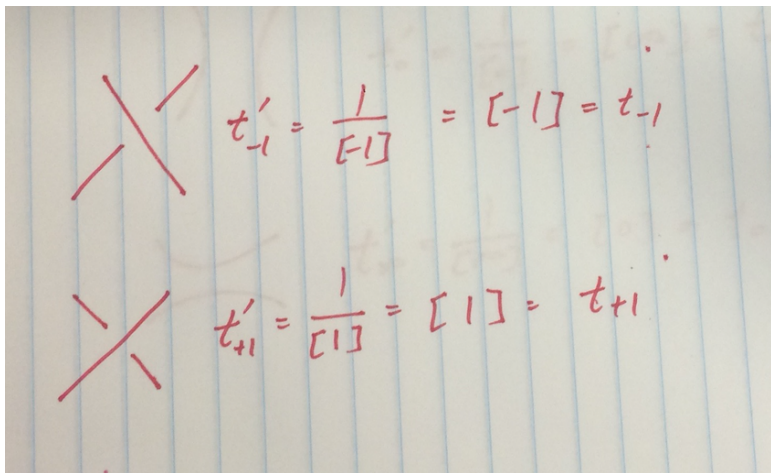 t'₋₁ = 1/[-1] = [-1] = t₋₁
t'₊₁ = 1/[1] = [1] = t₊₁